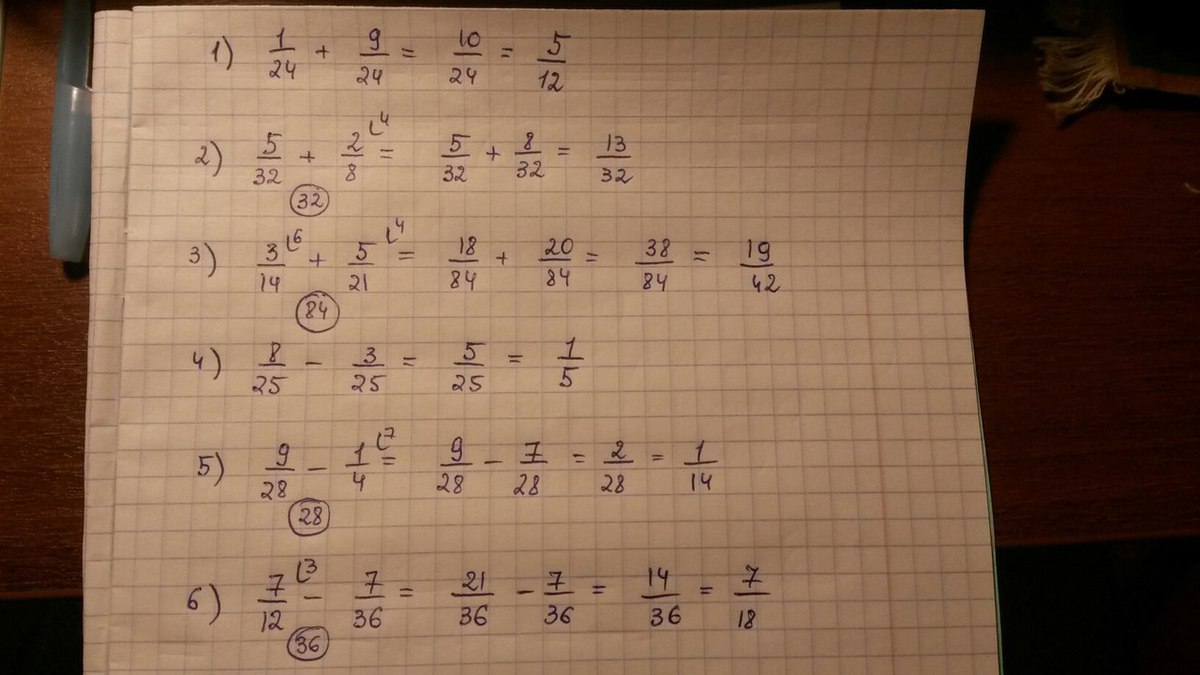 1) 1/24 + 9/24 = 10/24 = 5/12
2) 5/32 + 2/8 ⌊4 = 5/32 + 8/32 = 13/32
32
3) 3/14 ⌊6 + 5/21 ⌊4 = 18/84 + 20/84 = 38/84 = 19/42
84
4) 8/25 - 3/25 = 5/25 = 1/5
5) 9/28 - 1/4 ⌊7 = 9/28 - 7/28 = 2/28 = 1/14
28
6) 7/12 ⌊3 - 7/36 = 21/36 - 7/36 = 14/36 = 7/18
36